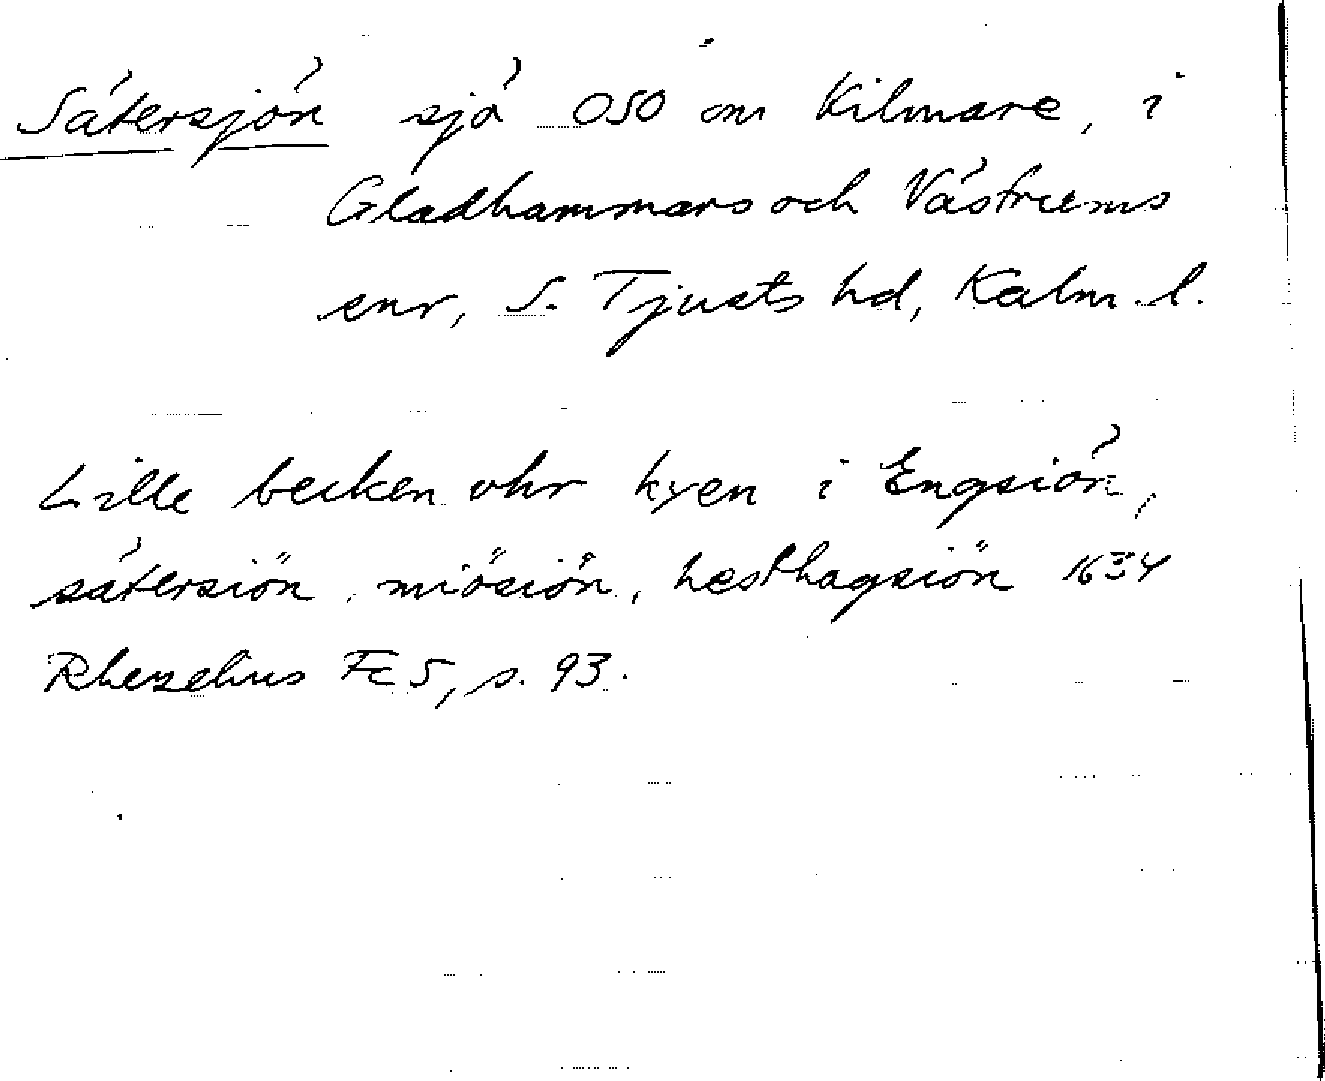 Sätersjön sjö OSO om Kilmare, i
Gladhammars och Västrums
snr, S. Tjusts hd, Kalm. l.
Lille becken uhr kyen i Engsiön,
sätersiön, miösiön, hesthagsiön 1634
Rhezelius Fc 5, s. 93.